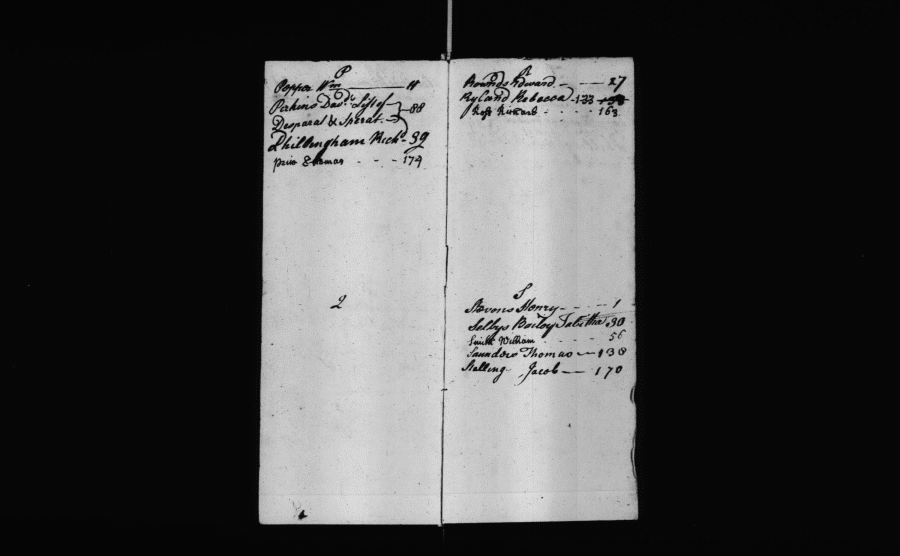 P
Popper Wm 11
Perkins Davd. List of
Desparat & Sperat. 88
Phillingham Richd. 39
Price Thomas - - - 174
Q
R
Rounds Edward - - - 27
Ryland Rebecca - 133
Roft Richard - - - - 163
S
Stevens Henry - - - - 1
Selbys Bailey Tabitha 30
Smith William - - - - 56
Saunders Thomas - 138
Stalling Jacob - 170